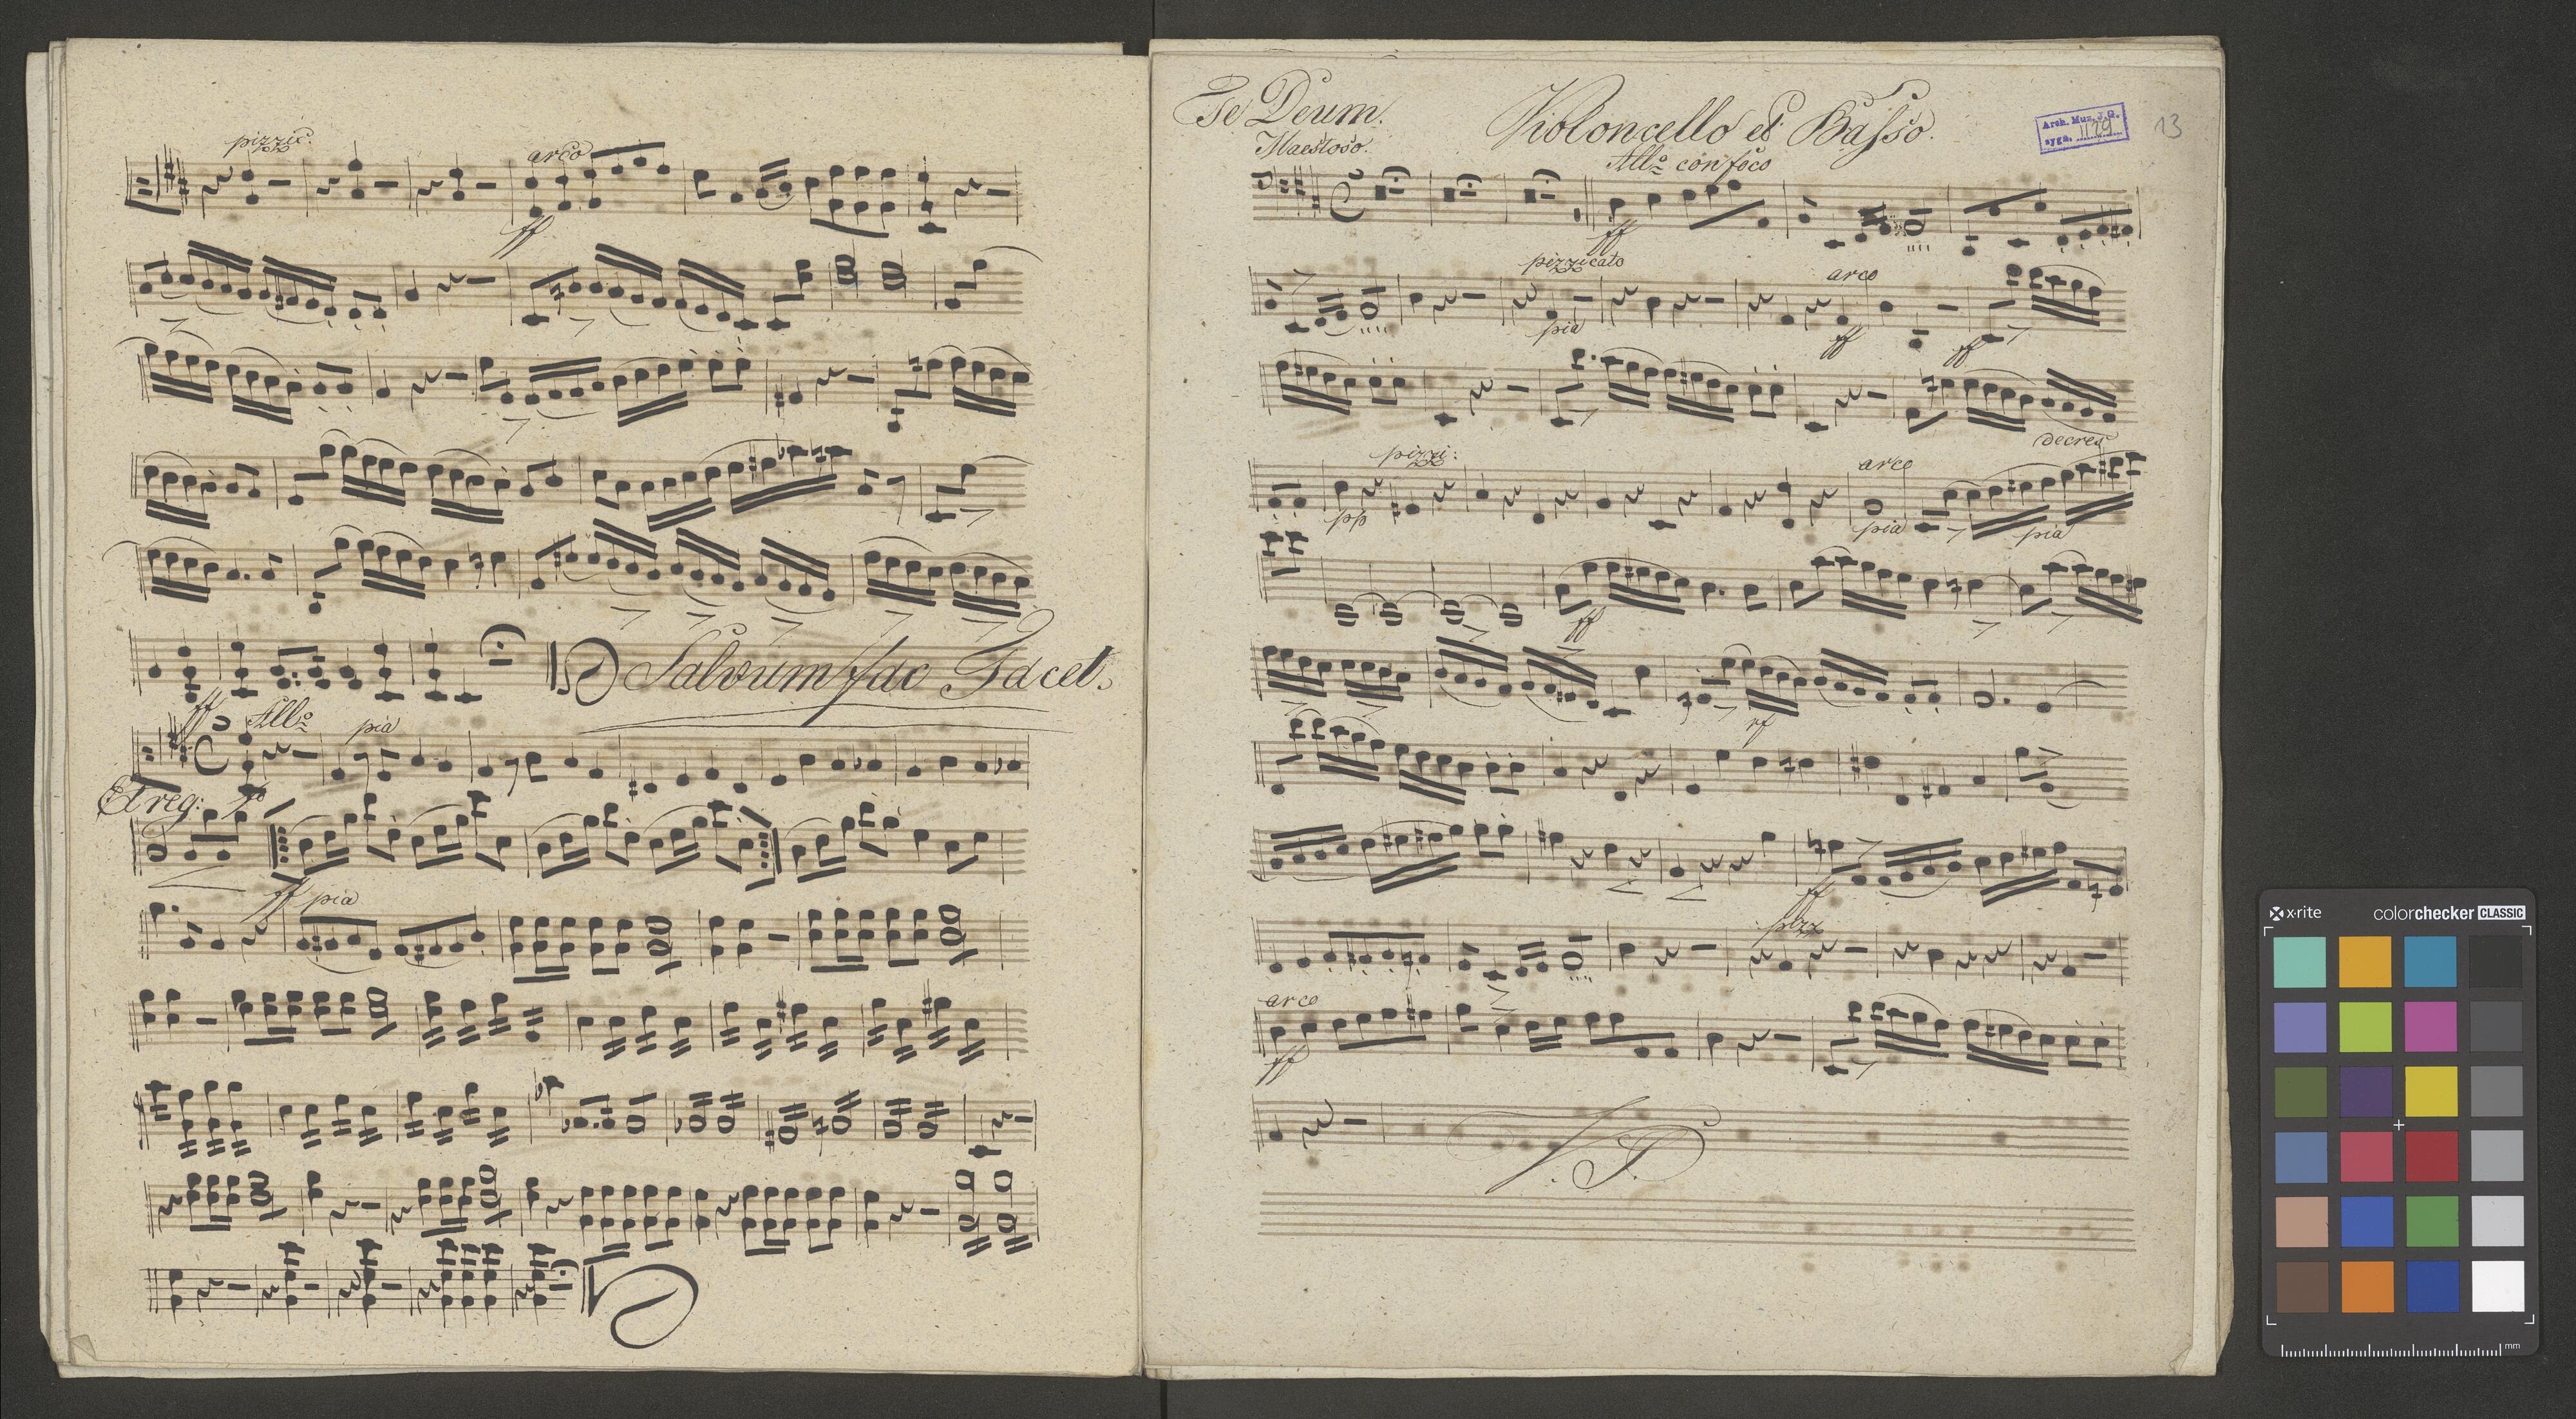 pizzic.
arco
ff
Salvum fac Tacet.
ff
All°
pia
Et reg:
ff pia
Te Deum.
Violoncello et Basso.
Arch. Muz. J. G.
sygn. II 29
13
Maestoso.
All° con foco
ff
pizzicato
arco
pia
ff
ff
decres
pizzi:
arco
pp
pia
pia
ff
rf
ff
pizz
arco
ff
V. S.
x-rite
colorchecker CLASSIC
mm